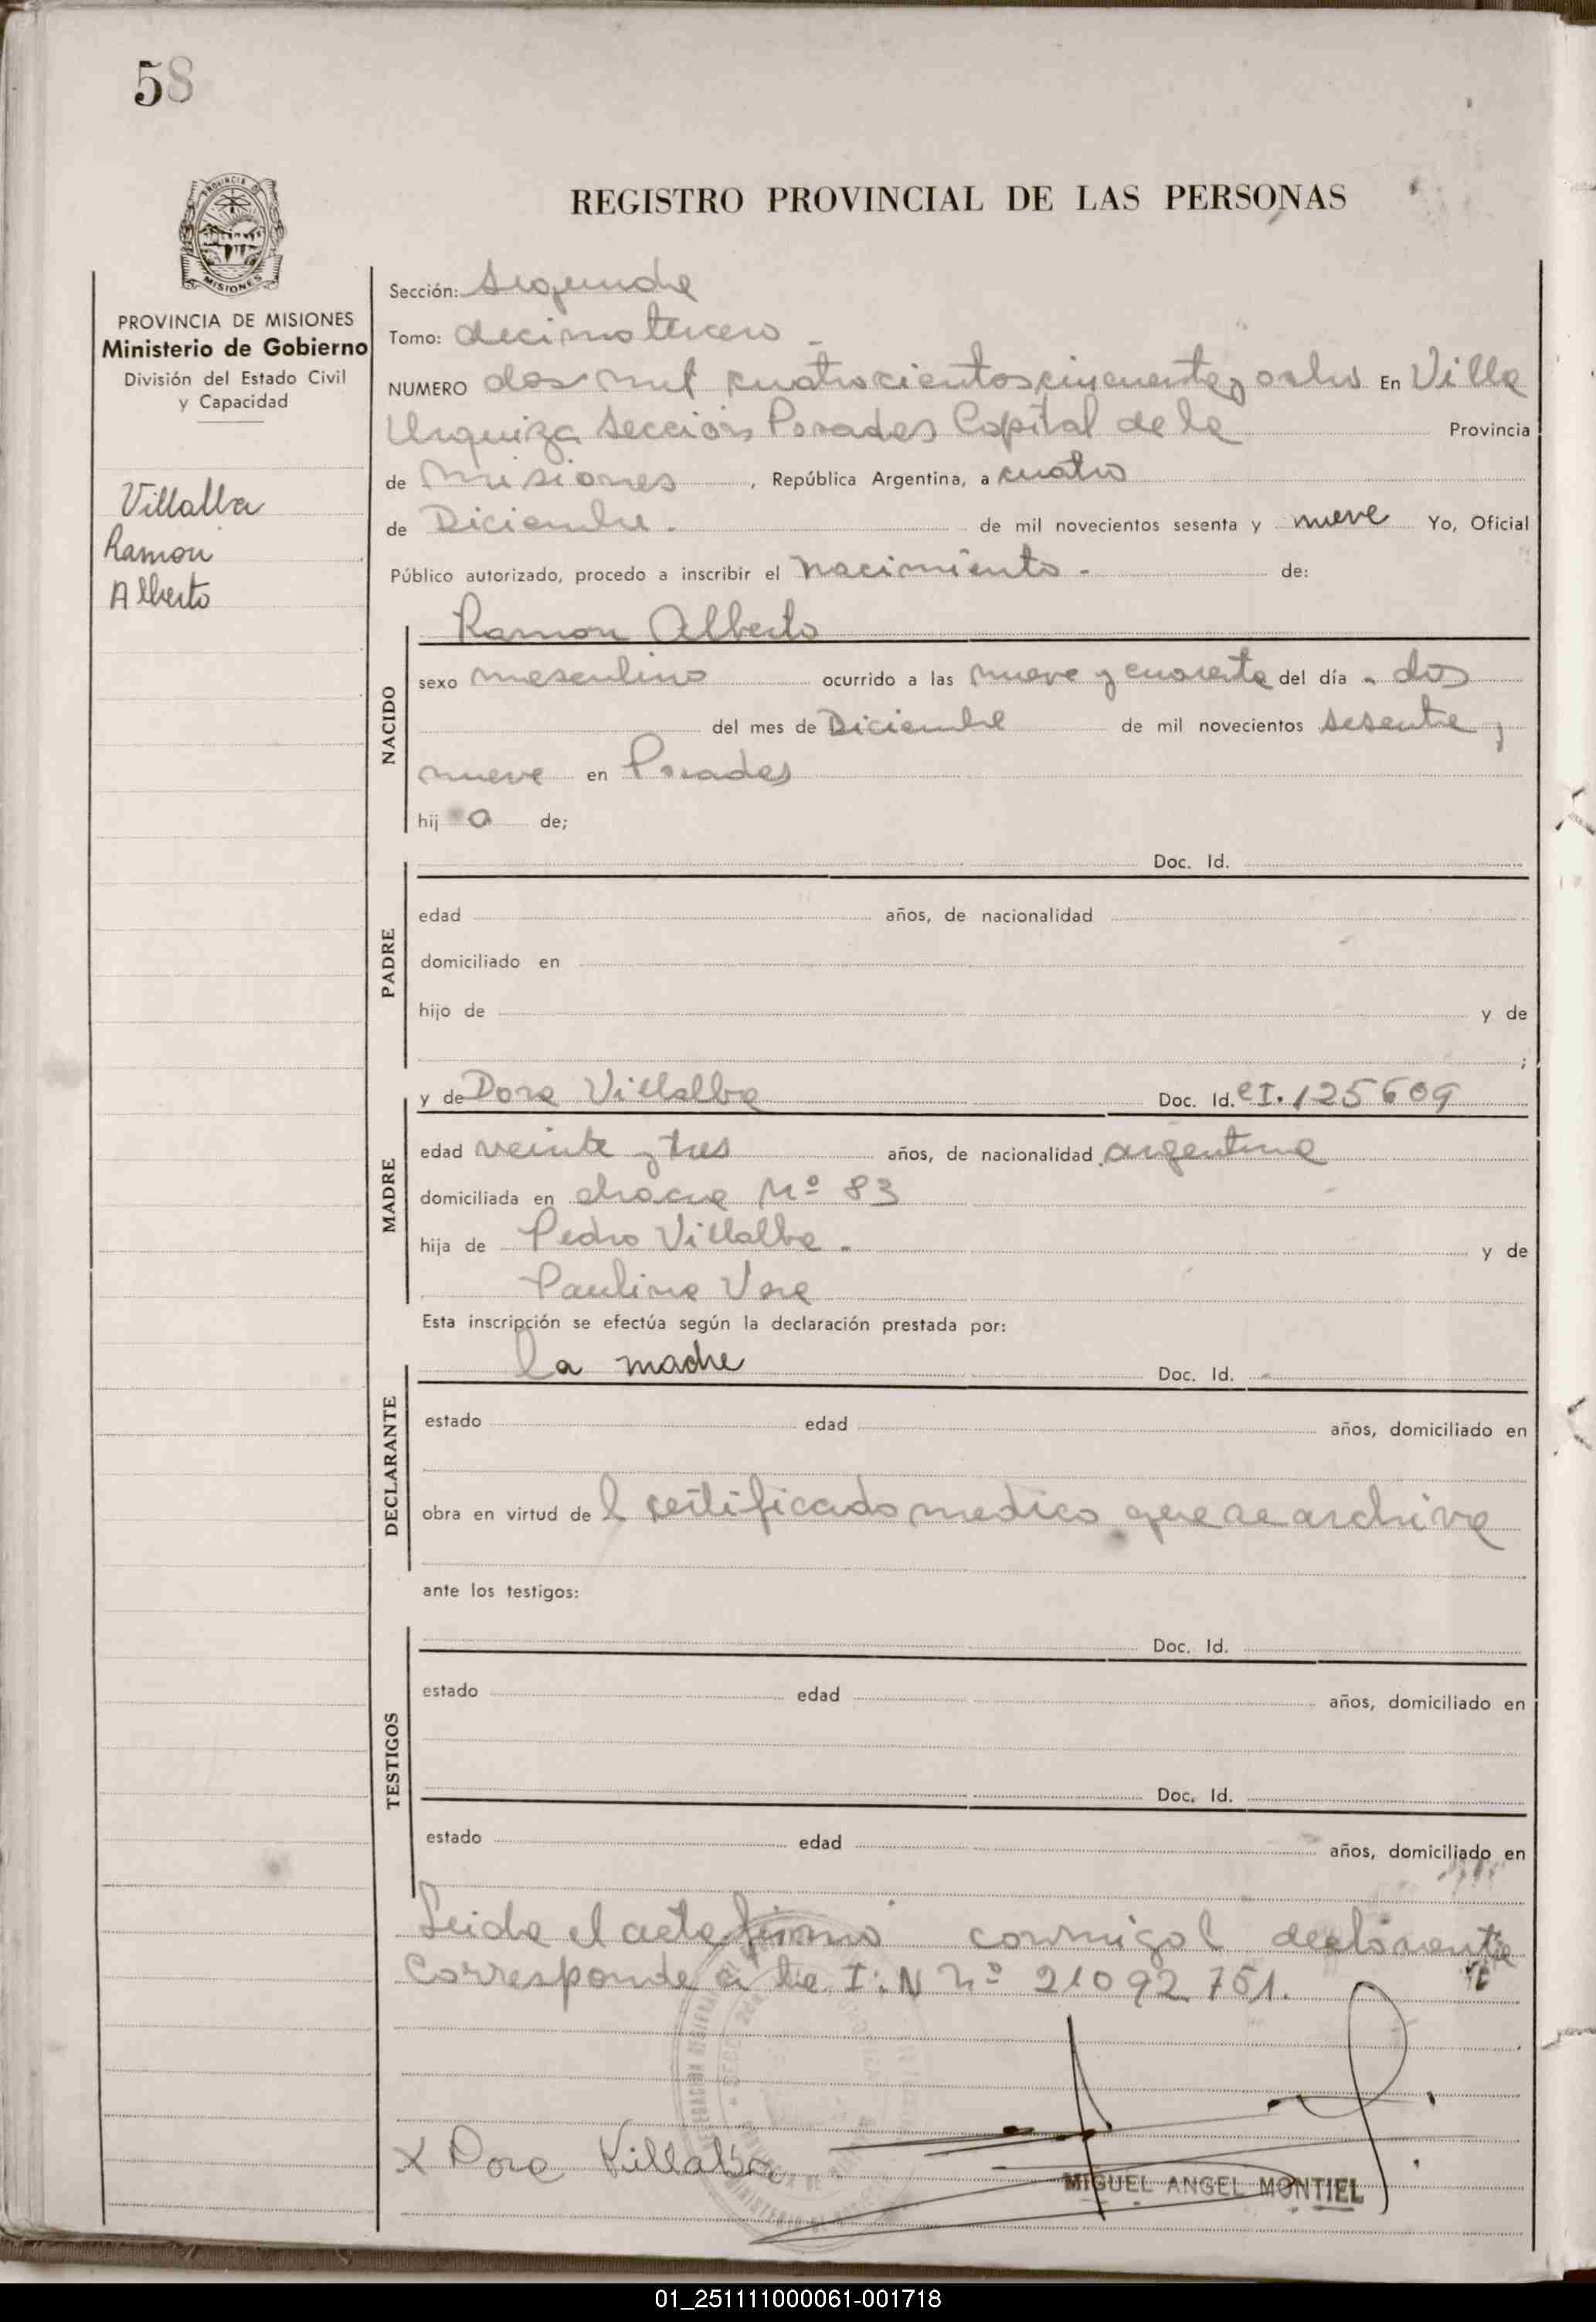 58
REGISTRO PROVINCIAL DE LAS PERSONAS
PROVINCIA DE
MISIONES
PROVINCIA DE MISIONES
Ministerio de Gobierno
División del Estado Civil
y Capacidad
Villalba
Ramon
Alberto
Sección: Segunda
Tomo: decimo tercero -
NUMERO dos mil cuatrocientos cincuenta y ocho En Villa
Urquiza Sección Posadas Capital de la Provincia
de Misiones , República Argentina, a cuatro
de Diciembre. de mil novecientos sesenta y nueve Yo, Oficial
Público autorizado, procedo a inscribir el nacimiento - de:
NACIDO
Ramon Alberto
sexo masculino ocurrido a las nueve y cuarenta del día - dos
del mes de Diciembre de mil novecientos sesenta y
nueve en Posadas
hij o de;
PADRE
Doc. Id.
edad años, de nacionalidad
domiciliado en
hijo de y de
;
MADRE
y de Dora Villalba Doc. Id. CI. 125609
edad veinte y tres años, de nacionalidad argentina
domiciliada en chacra Nº 83
hija de Pedro Villalba - y de
Paulina Vera
Esta inscripción se efectúa según la declaración prestada por:
DECLARANTE
la madre Doc. Id.
estado edad años, domiciliado en
obra en virtud de l certificado medico que se archiva
ante los testigos:
TESTIGOS
Doc. Id.
estado edad años, domiciliado en
Doc. Id.
estado edad años, domiciliado en
Leida el acta firmo conmigo l declarante
Corresponde a la I: N nº 21092.751.
X Dora Villalba
MIGUEL ANGEL MONTIEL
01_251111000061-001718